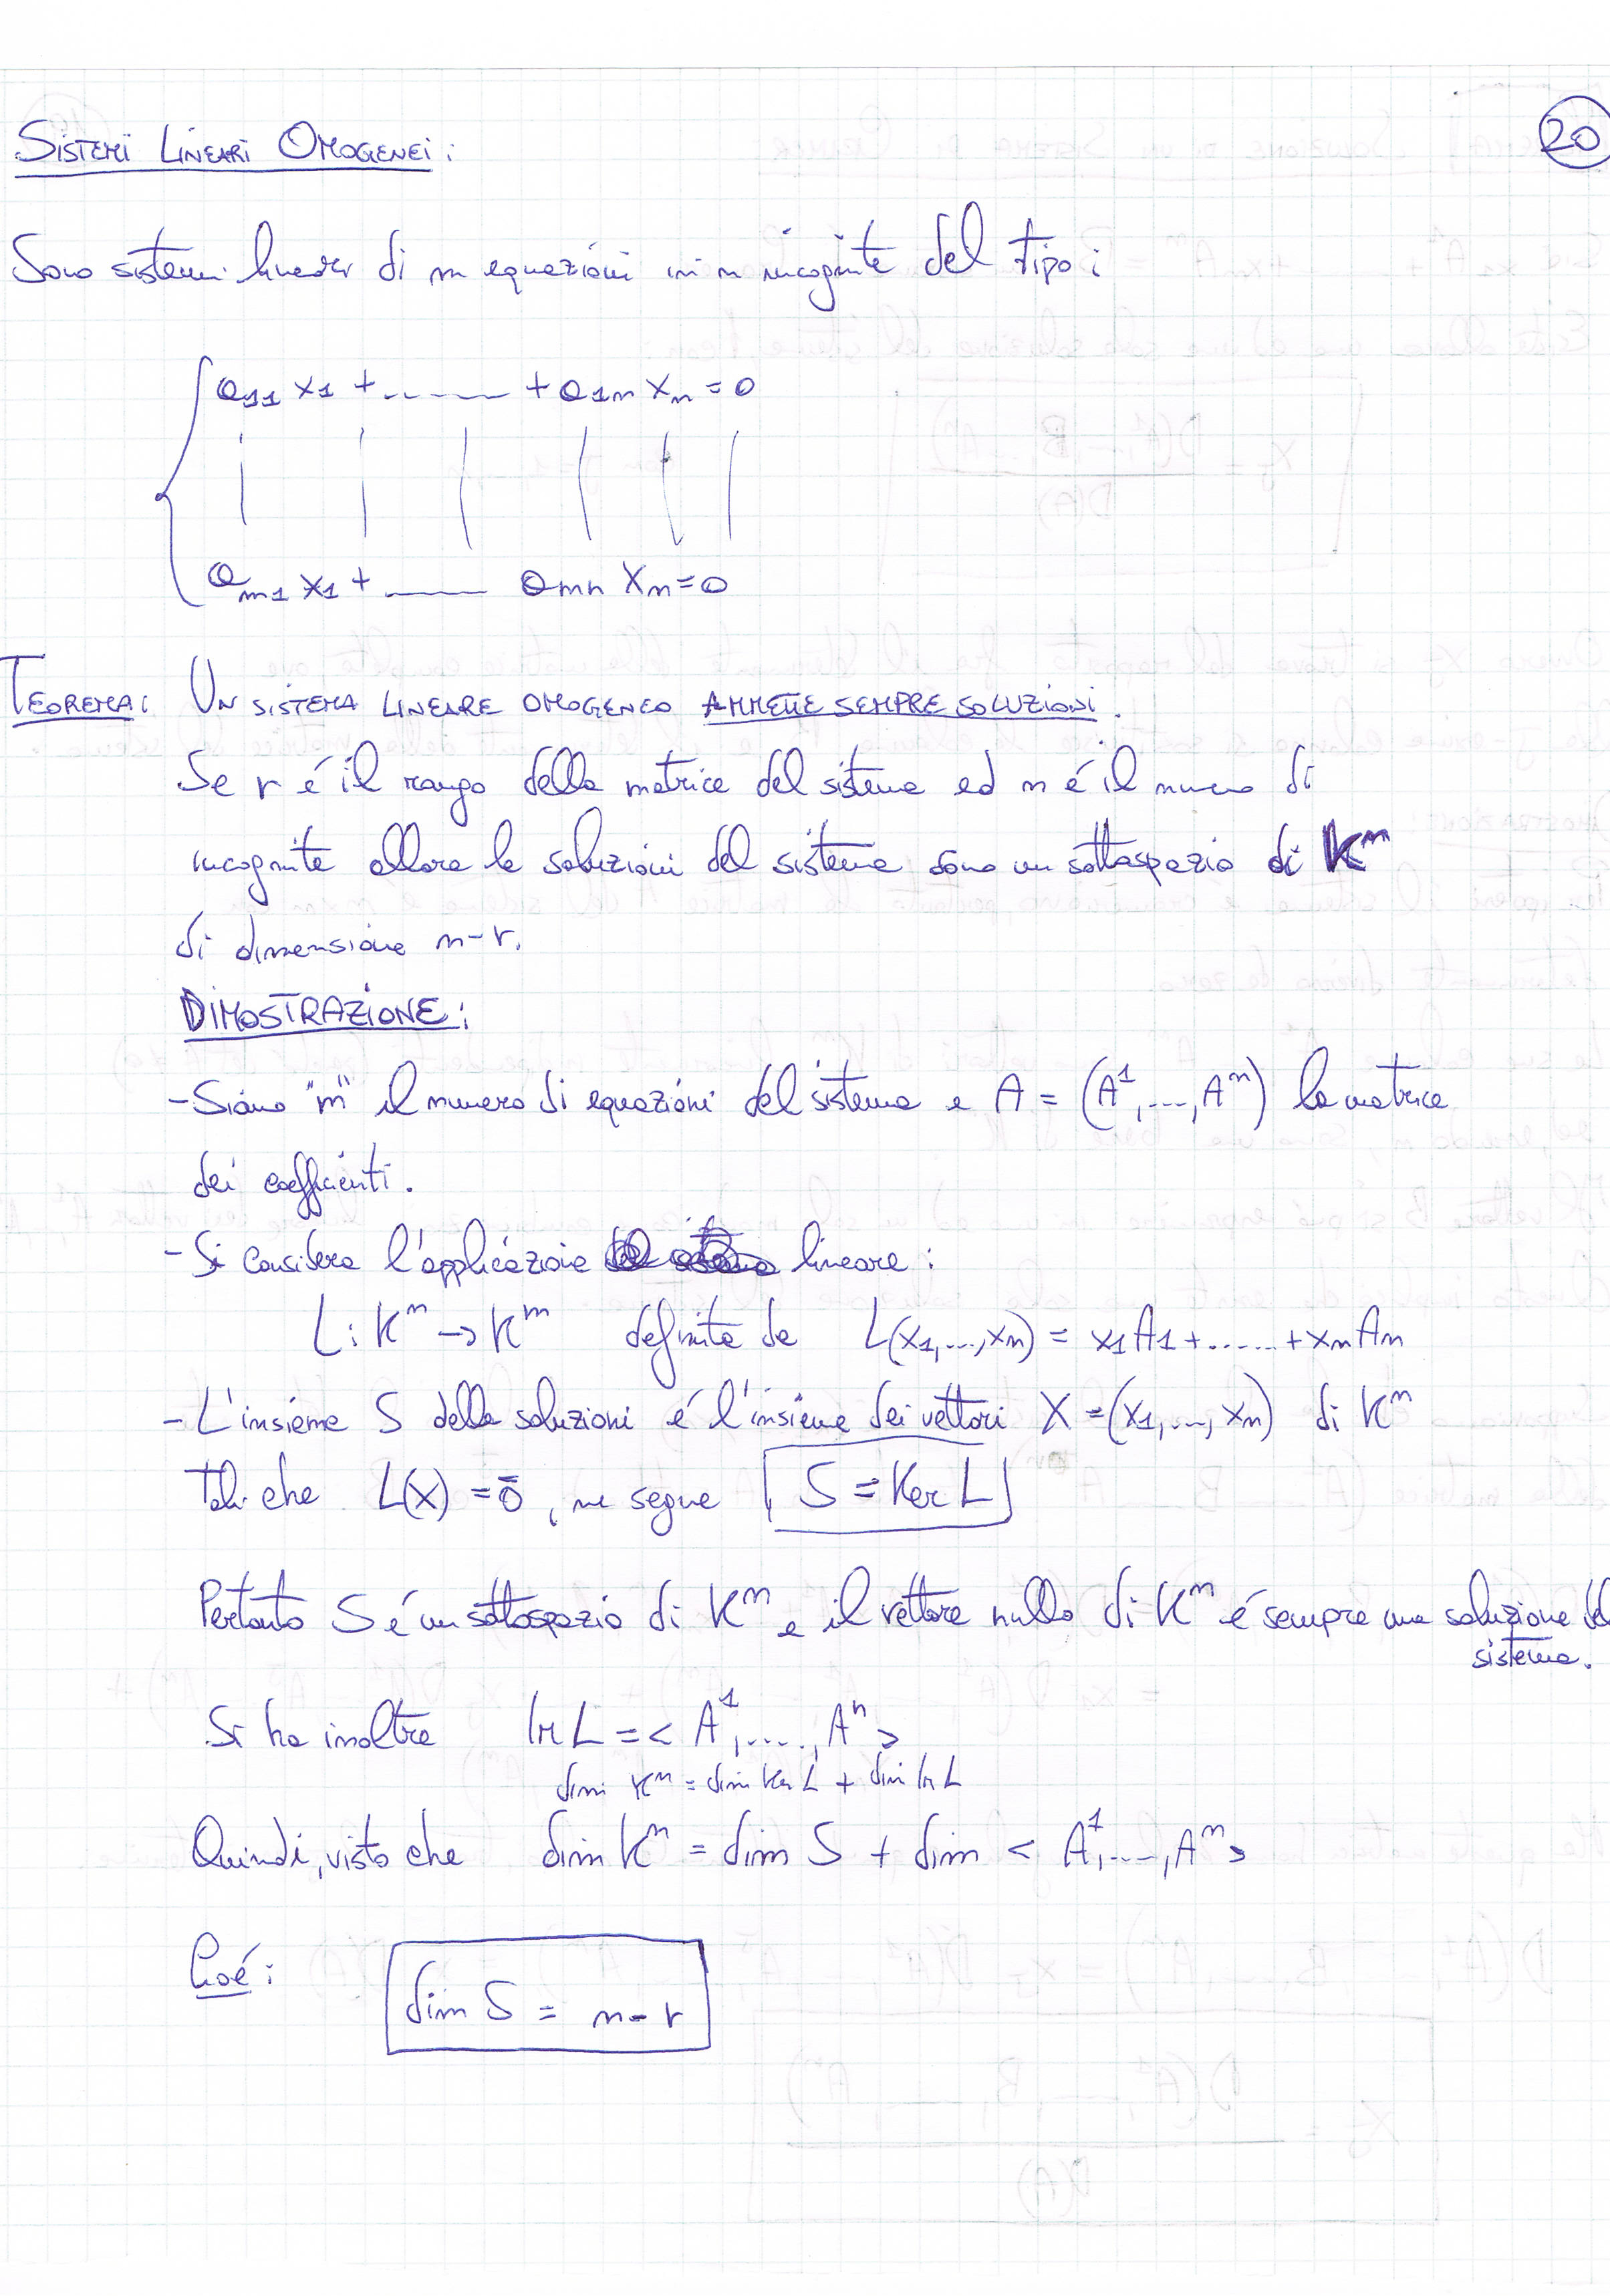 20
SISTEMI LINEARI OMOGENEI:
Sono sistemi lineari di m equazioni in n incognite del tipo:
a11 x1 + ...... + a1n xn = 0
am1 x1 + ...... amn xn = 0
TEOREMA: UN SISTEMA LINEARE OMOGENEO AMMETTE SEMPRE SOLUZIONI.
Se r é il rango della matrice del sistema ed n é il numero di
incognite allora le soluzioni del sistema sono un sottospazio di Kⁿ
di dimensione n-r.
DIMOSTRAZIONE:
- Siano "m" il numero di equazioni del sistema e A = (A¹,...,Aⁿ) la matrice
dei coefficienti.
- Si considera l'applicazione lineare:
L: Kⁿ → Kᵐ definita da L(x1,...,xn) = x1A1+......+xnAn
- L'insieme S delle soluzioni é l'insieme dei vettori X = (x1,...,xn) di Kⁿ
Tali che L(X) = 0̄, ne segue S = Ker L
Pertanto S é un sottospazio di Kⁿ e il vettore nullo di Kⁿ é sempre una soluzione del
sistema.
Si ha inoltre Im L = < A¹,....,Aⁿ >
dim Kⁿ = dim Ker L + dim Im L
Quindi, visto che dim Kⁿ = dim S + dim < A¹,...,Aⁿ >
Cioé: dim S = n-r